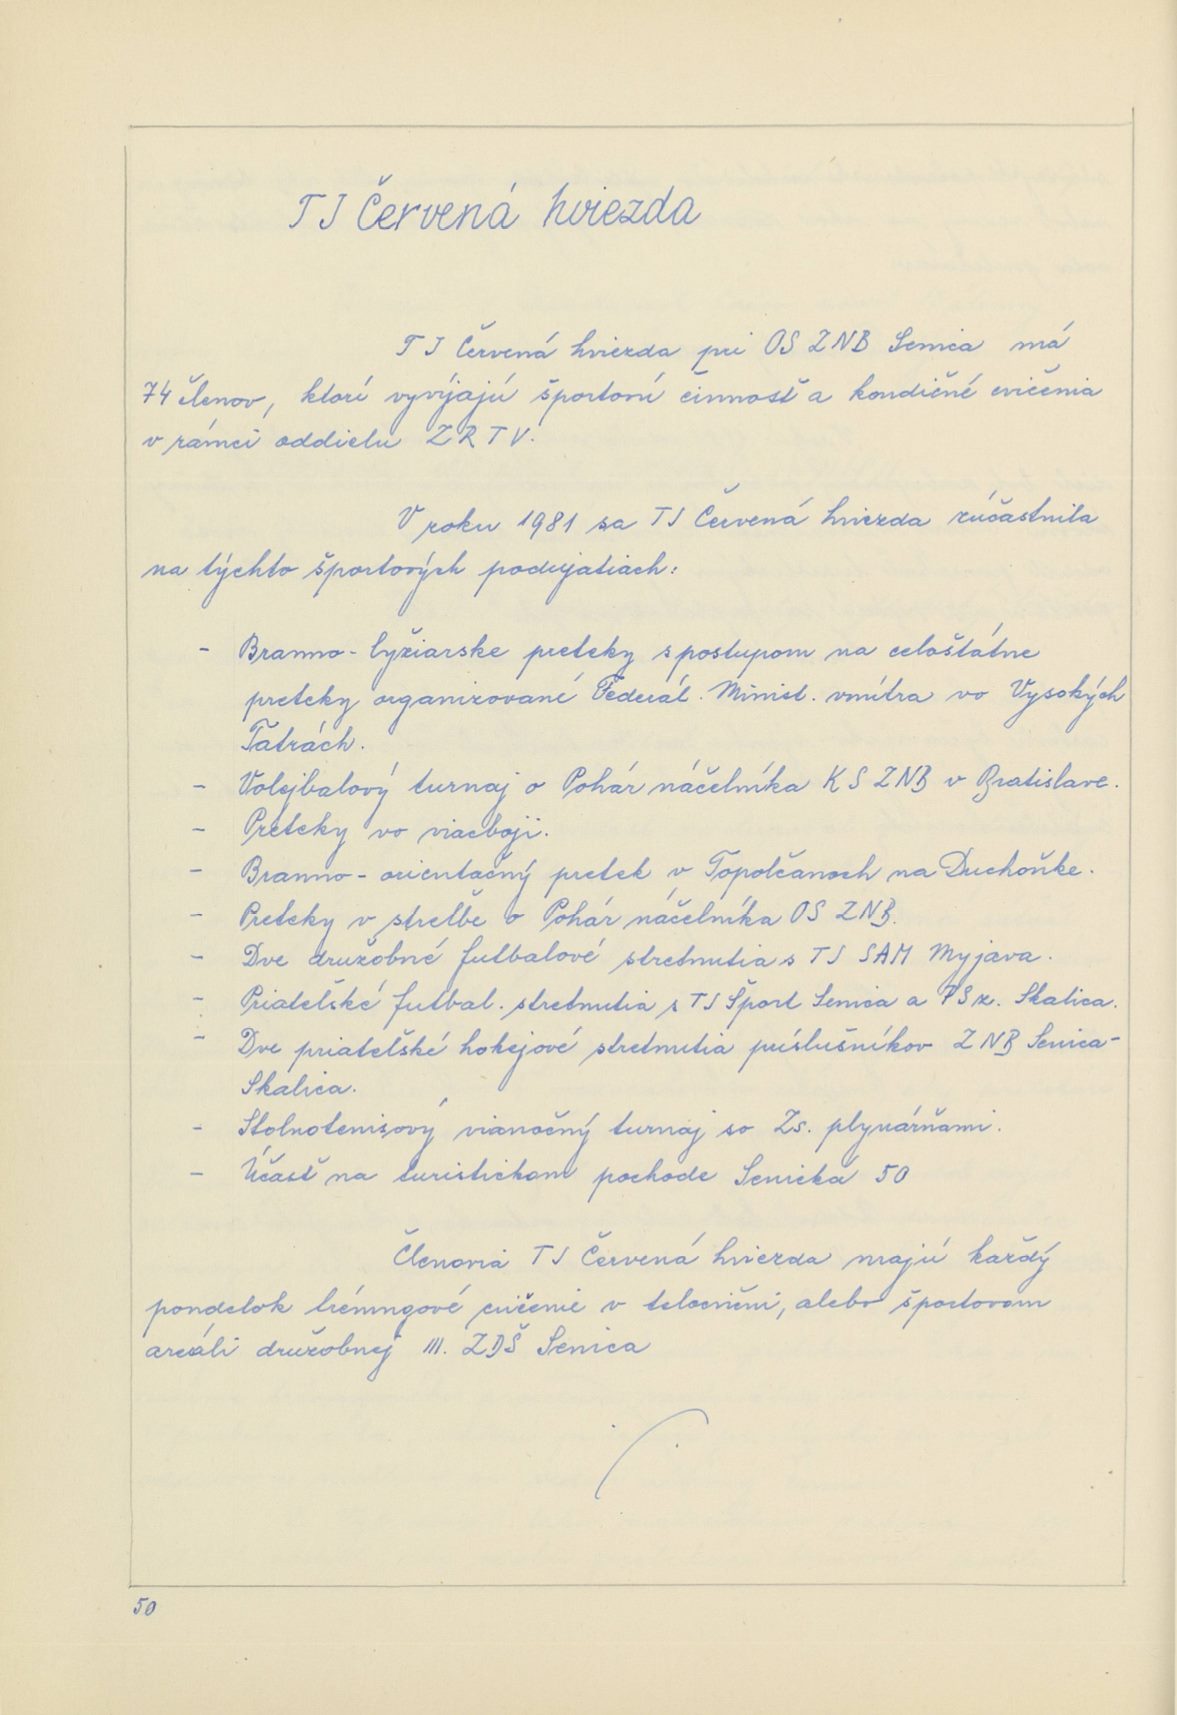 TJ Červená hviezda
TJ Červená hviezda pri OS ZNB Senica má
74 členov, ktorí vyvýjajú športovú činnosť a kondičné cvičenia
v rámci oddielu ZRTV.
V roku 1981 sa TJ Červená hviezda zúčastnila
na týchto športových podujatiach:
- Branno-lyžiarske preteky s postupom na celoštátne
preteky organizované Federál. Minist. vnútra vo Vysokých
Tatrách.
- Volejbalový turnaj o Pohár náčelníka KS ZNB v Bratislave.
- Preteky vo viacboji.
- Branno-orientačný pretek v Topolčanoch na Duchoňke.
- Preteky v streľbe o Pohár náčelníka OS ZNB.
- Dve družobné futbalové stretnutia s TJ SAM Myjava.
- Priateľské futbal. stretnutia s TJ Šport Senica a PS z. Skalica.
- Dve priateľské hokejové stretnutia príslušníkov ZNB Senica-
Skalica.
- Stolnotenisový vianočný turnaj so Zs. plynárňami.
- Účasť na turistickom pochode Senická 50
Členovia TJ Červená hviezda majú každý
pondelok tréningové cvičenie v telocvični, alebo športovom
areáli družobnej III. ZDŠ Senica
50